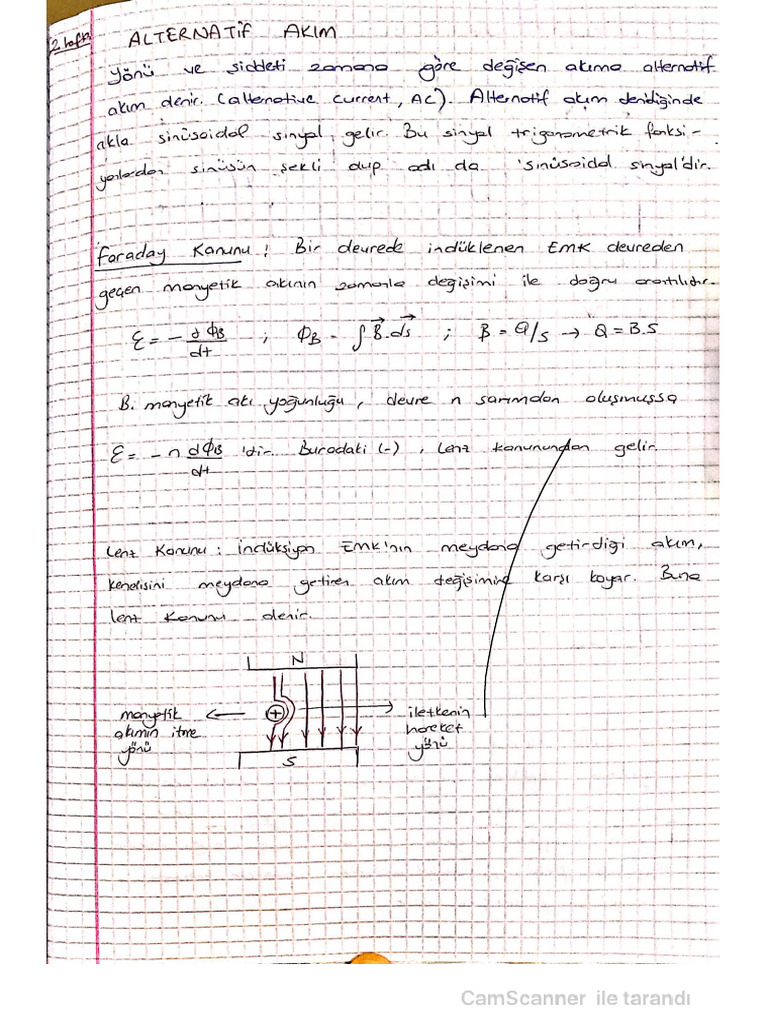 2. hafta
ALTERNATİF AKIM
Yönü ve şiddeti zamana göre değişen akıma alternatif
akım denir. (alternative current, AC). Alternatif akım denildiğinde
akla sinüsoidal sinyal gelir. Bu sinyal trigonometrik fonksi-
yonlardan sinüsün şekli olup adı da 'sinüsoidal sinyal'dir.
Faraday Kanunu : Bir devrede indüklenen EMK devreden
geçen manyetik akının zamanla değişimi ile doğru orantılıdır.
ε = - dΦB/dt ; ΦB = ∫B.ds ; B = Q/S → Q = B.S
B. manyetik akı yoğunluğu, devre n sarımdan oluşmuşsa
ε = - n dΦB/dt 'dir. Buradaki (-), Lenz kanunundan gelir.
Lenz Kanunu : indüksiyon EMK'nın meydana getirdiği akım,
kendisini meydana getiren akım değişimine karşı koyar. Buna
lenz kanunu denir.
N
manyetik akımın itme yönü
+
iletkenin hareket yönü
S
CamScanner ile tarandı